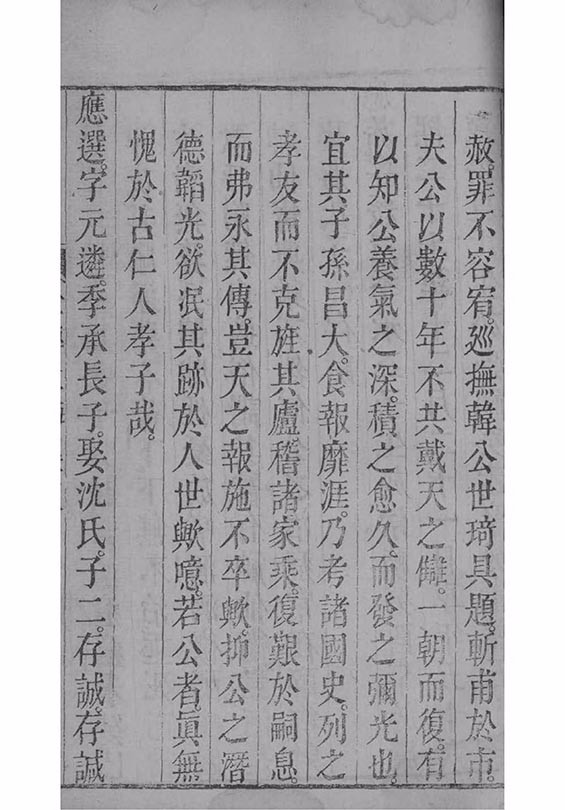 赦罪不容宥巡撫韓公世琦具題斬甫於市
夫公以數十年不共戴天之讎一朝而復有
以知公養氣之深積之愈久而發之彌光也
宜其子孫昌大食報靡涯乃考諸國史列之
孝友而不克旌其廬稽諸家乘復艱於嗣息
而弗永其傳豈天之報施不卒歟抑公之潛
德韜光欲泯其跡於人世歟噫若公者眞無
愧於古仁人孝子哉
應選字元遴季承長子娶沈氏子二存誠存誠